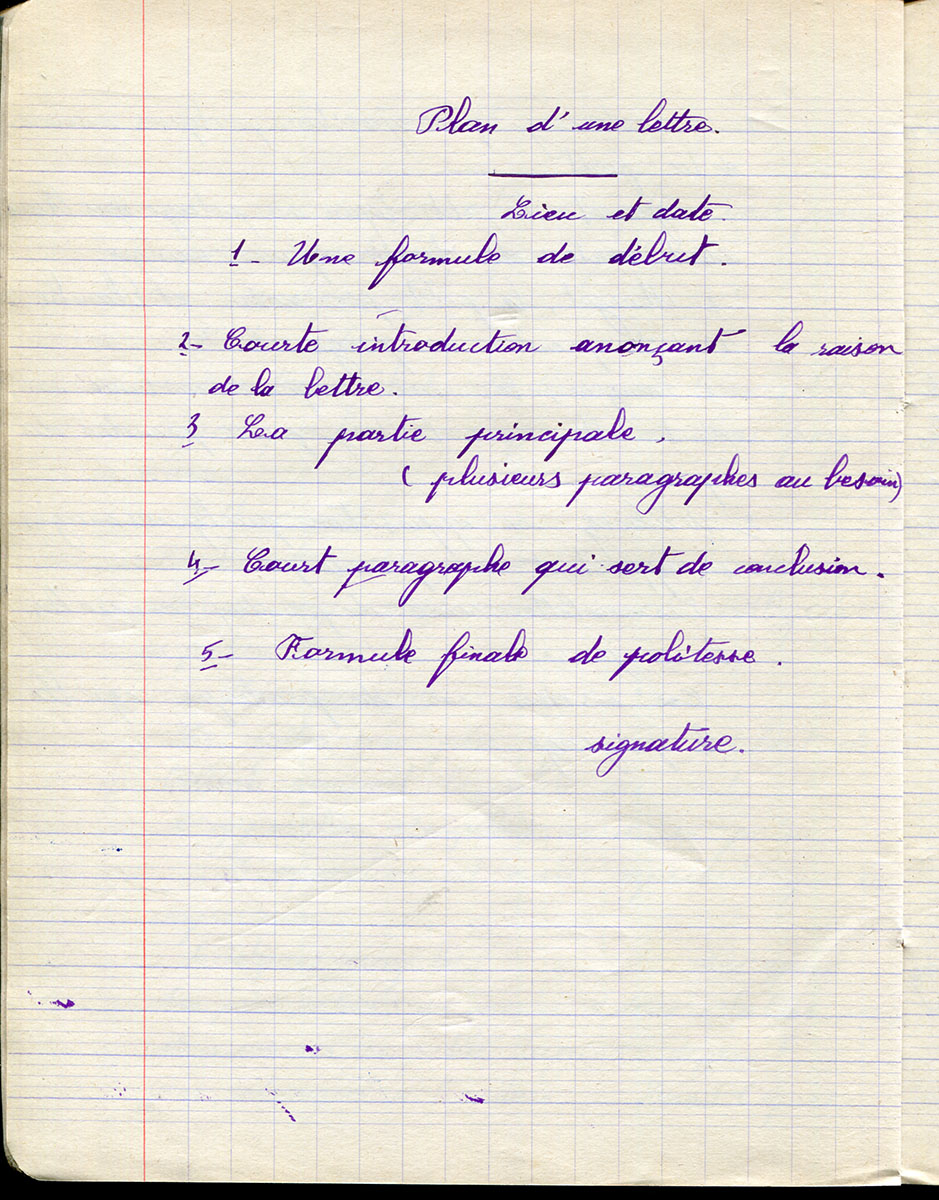 Plan d'une lettre.
Lieu et date.
1- Une formule de début.
2- Courte introduction anonçant la raison
de la lettre.
3 La partie principale.
( plusieurs paragraphes au besoin)
4- Court paragraphe qui sert de conclusion.
5- Formule finale de politesse.
signature.